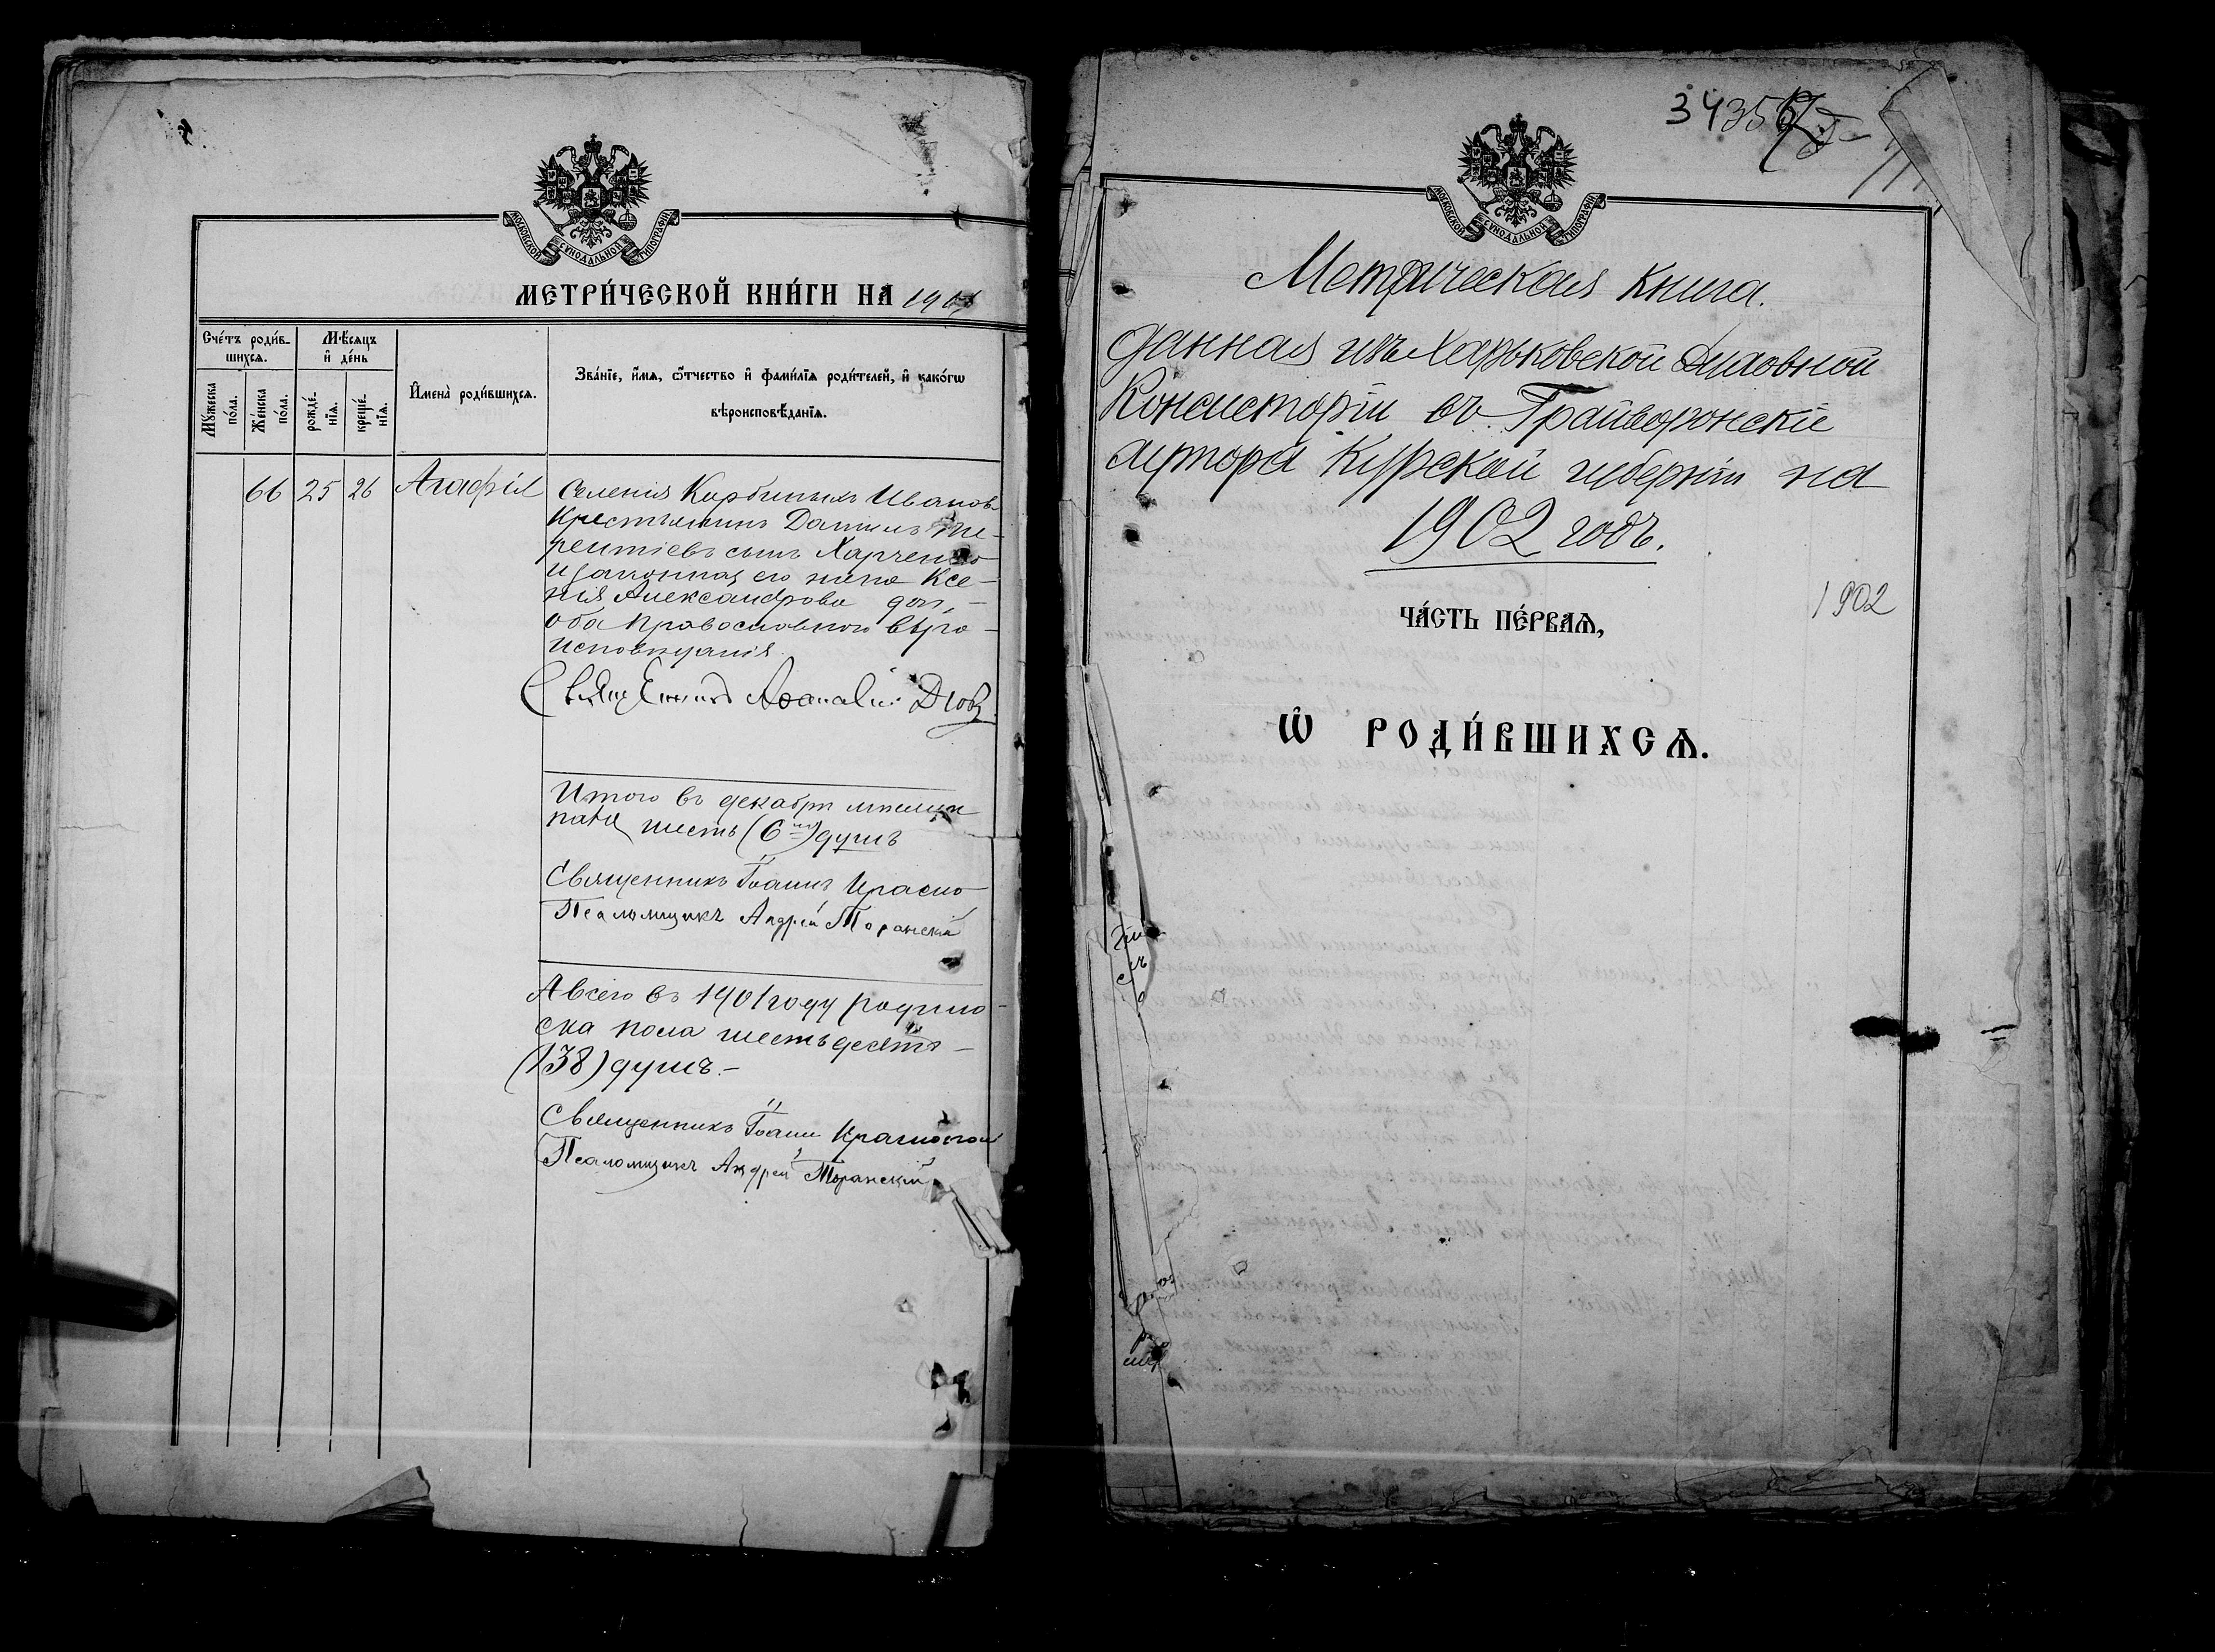 МОСКОВСКОЙ СѴНОДАЛЬНОЙ ТИПОГРАФІИ
МЕТРИ́ЧЕСКОЙ КНИ́ГИ НА 1901
Сче́тъ роди́в-
шихсѧ.
Мѣ́сѧцъ
и҆ де́нь
И҆мена̀ роди́вшихсѧ.
Зва́нїе, и҆́мѧ, ѻ҆́тчество и҆ фами́лїѧ роди́телей, и҆ како́гѡ
вѣроисповѣ́данїѧ.
Мꙋ́жеска
по́ла.
Же́нска
по́ла.
рожде́-
нїѧ.
креще́-
нїѧ.
66 25 26 Агафія
Селенія Иванов
Крестьянинъ Даніилъ Те-
рентіевъ сынъ Харченко
и законная его жена Ксе-
нія Александрова
оба Православнаго вѣро-
исповѣданія.
Священникъ Аѳанасій
Итого въ декабрѣ мѣсяцѣ
пола шесть (6) душъ
Священникъ Іоаннъ Красно
Псаломщикъ Андрей
А всего въ 1901 году родило-
ска пола шестьдесятъ
(138) душъ.-
Священникъ Іоаннъ
Псаломщикъ Андрей
34356
МОСКОВСКОЙ СѴНОДАЛЬНОЙ ТИПОГРАФІИ
Метрическая книга.
данная изъ Харьковской Духовной
Консисторіи въ Грайворонскіе
хутора Курской губерніи на
1902 годъ.
1902
ЧА́СТЬ ПЕ́РВАѦ,
Ѡ҆ РОДИ́ВШИХСѦ.